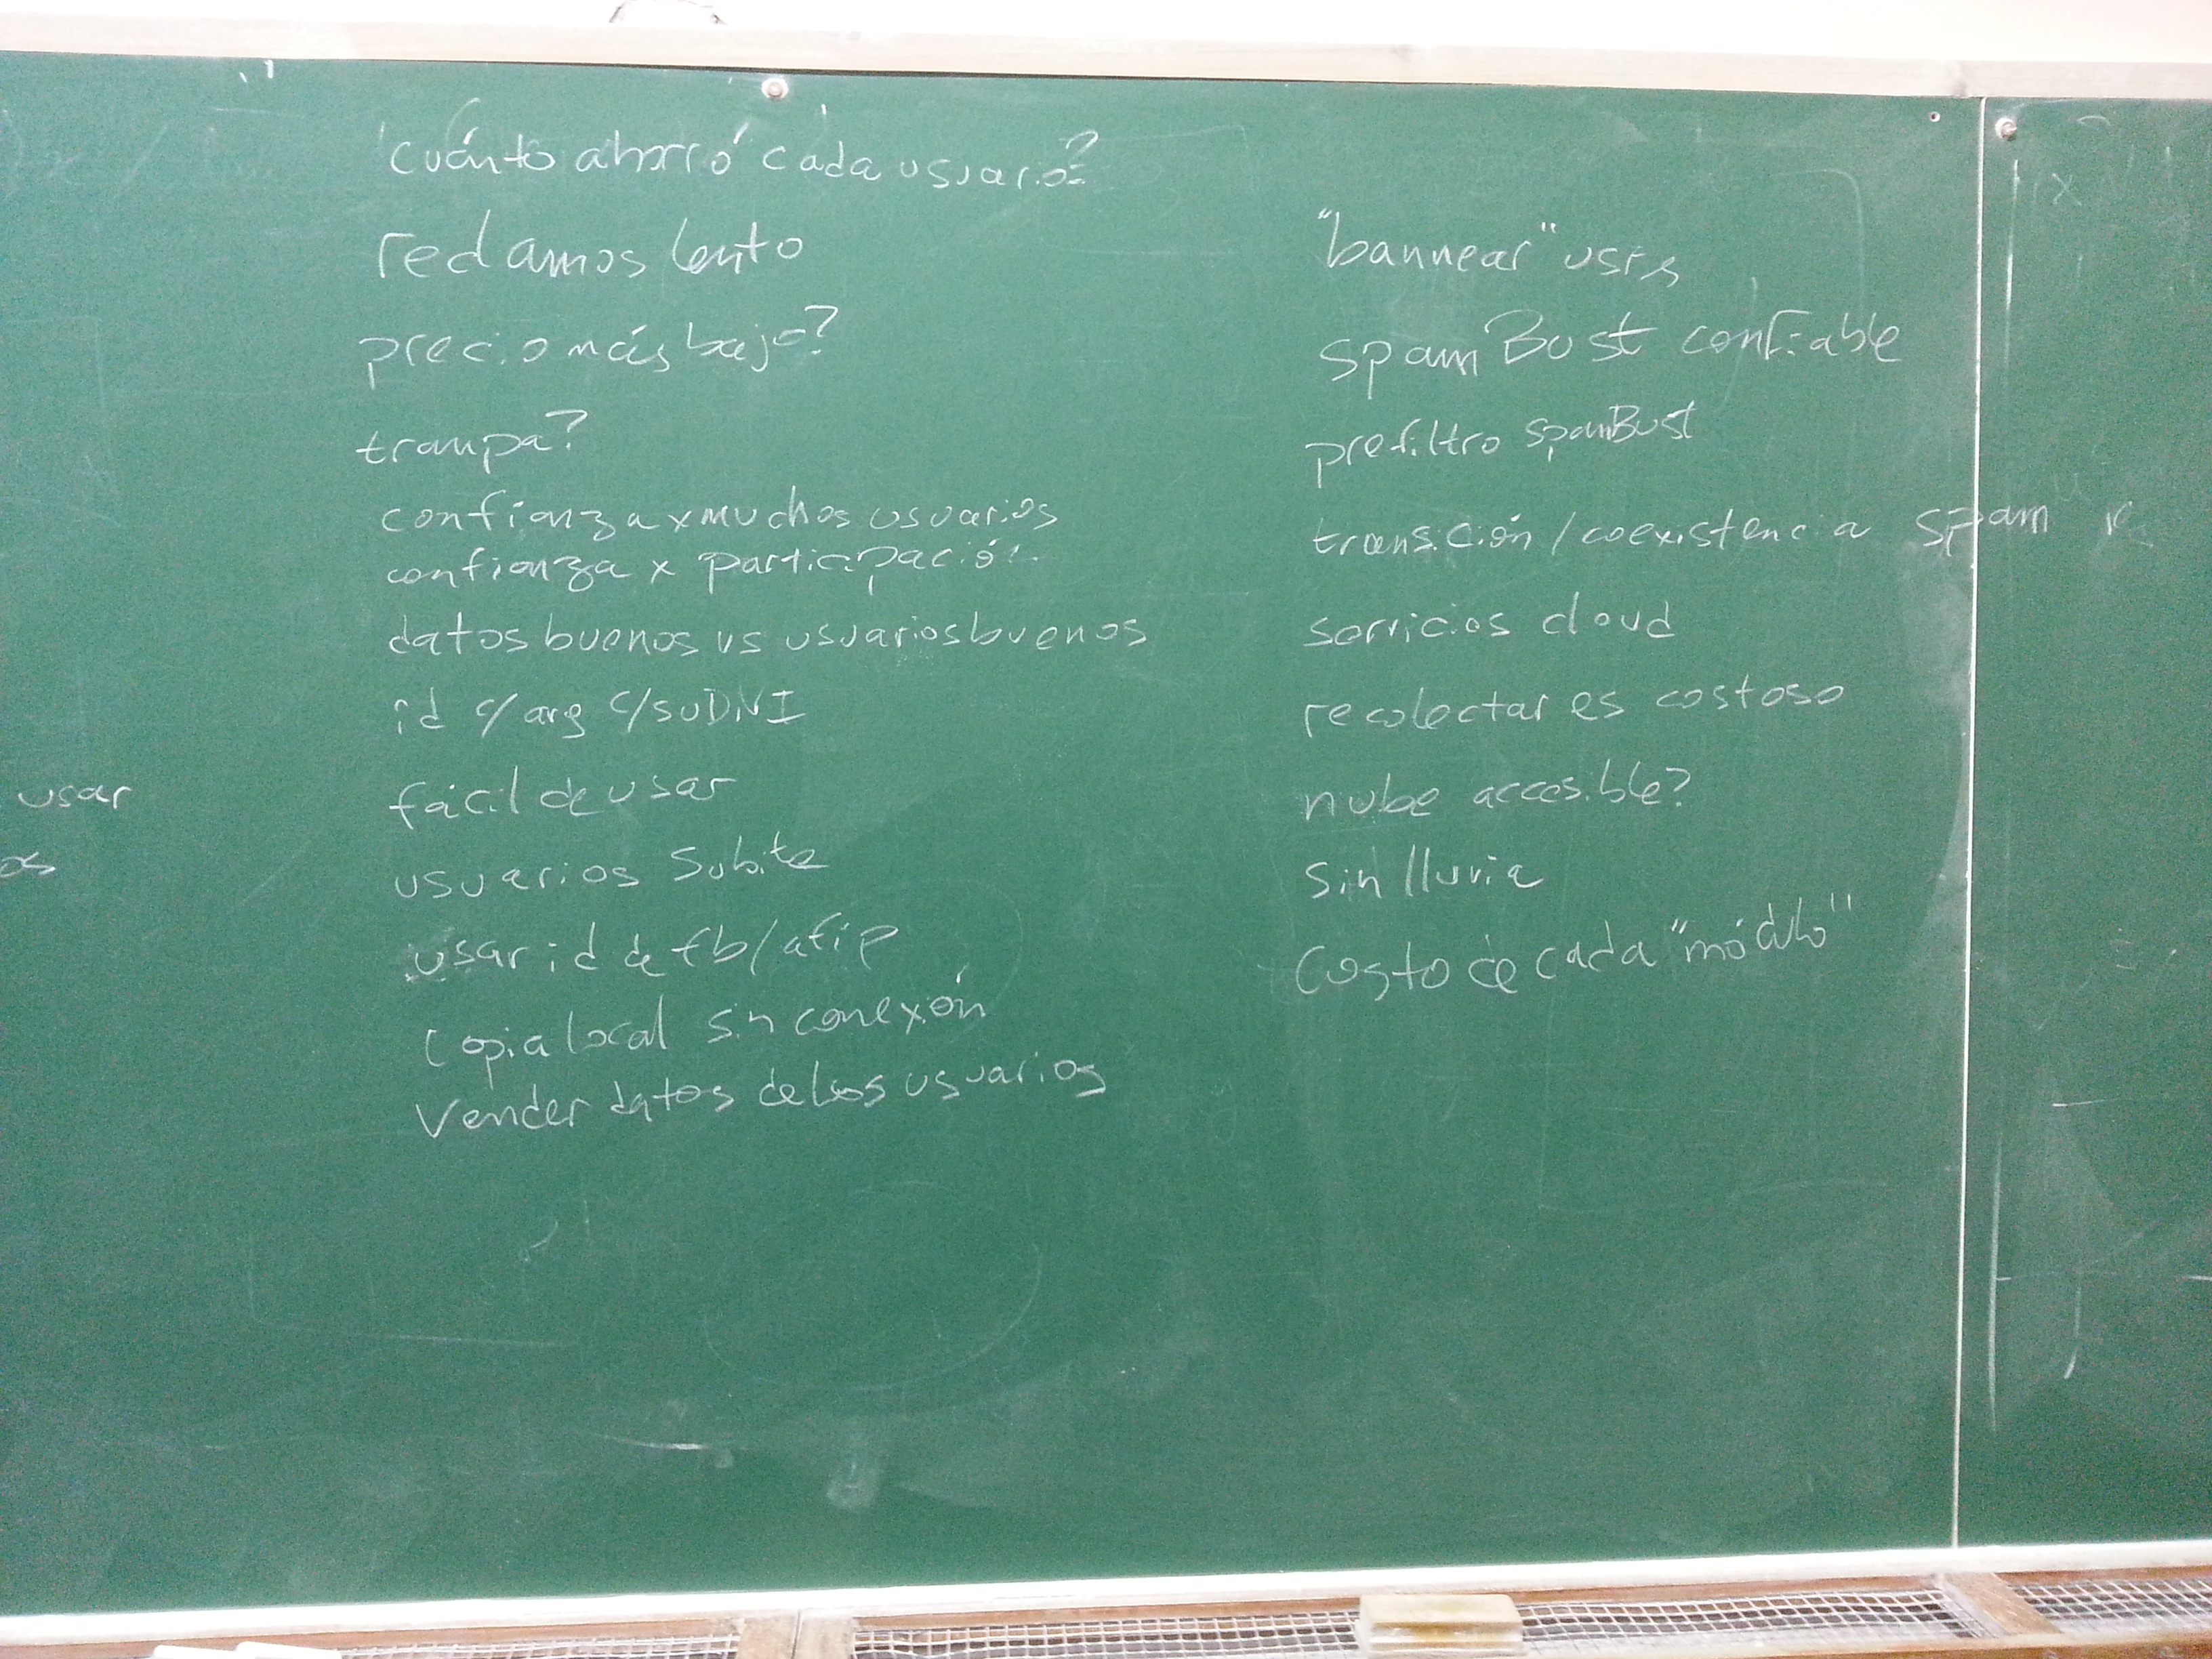 cuánto ahorró cada usuario?
reclamos lento
precio más bajo?
trampa?
confianza x muchos usuarios
confianza x participación
datos buenos vs usuarios buenos
id c/arg c/su DNI
fácil de usar
usuarios Subite
usar id de fb/afip
copia local sin conexión
Vender datos de los usuarios
"bannear" usrs
spamBust confiable
prefiltro spamBust
transición/coexistencia spam
servicios cloud
recolectar es costoso
nube accesible?
sin lluvia
Costo de cada "módulo"
usar
os